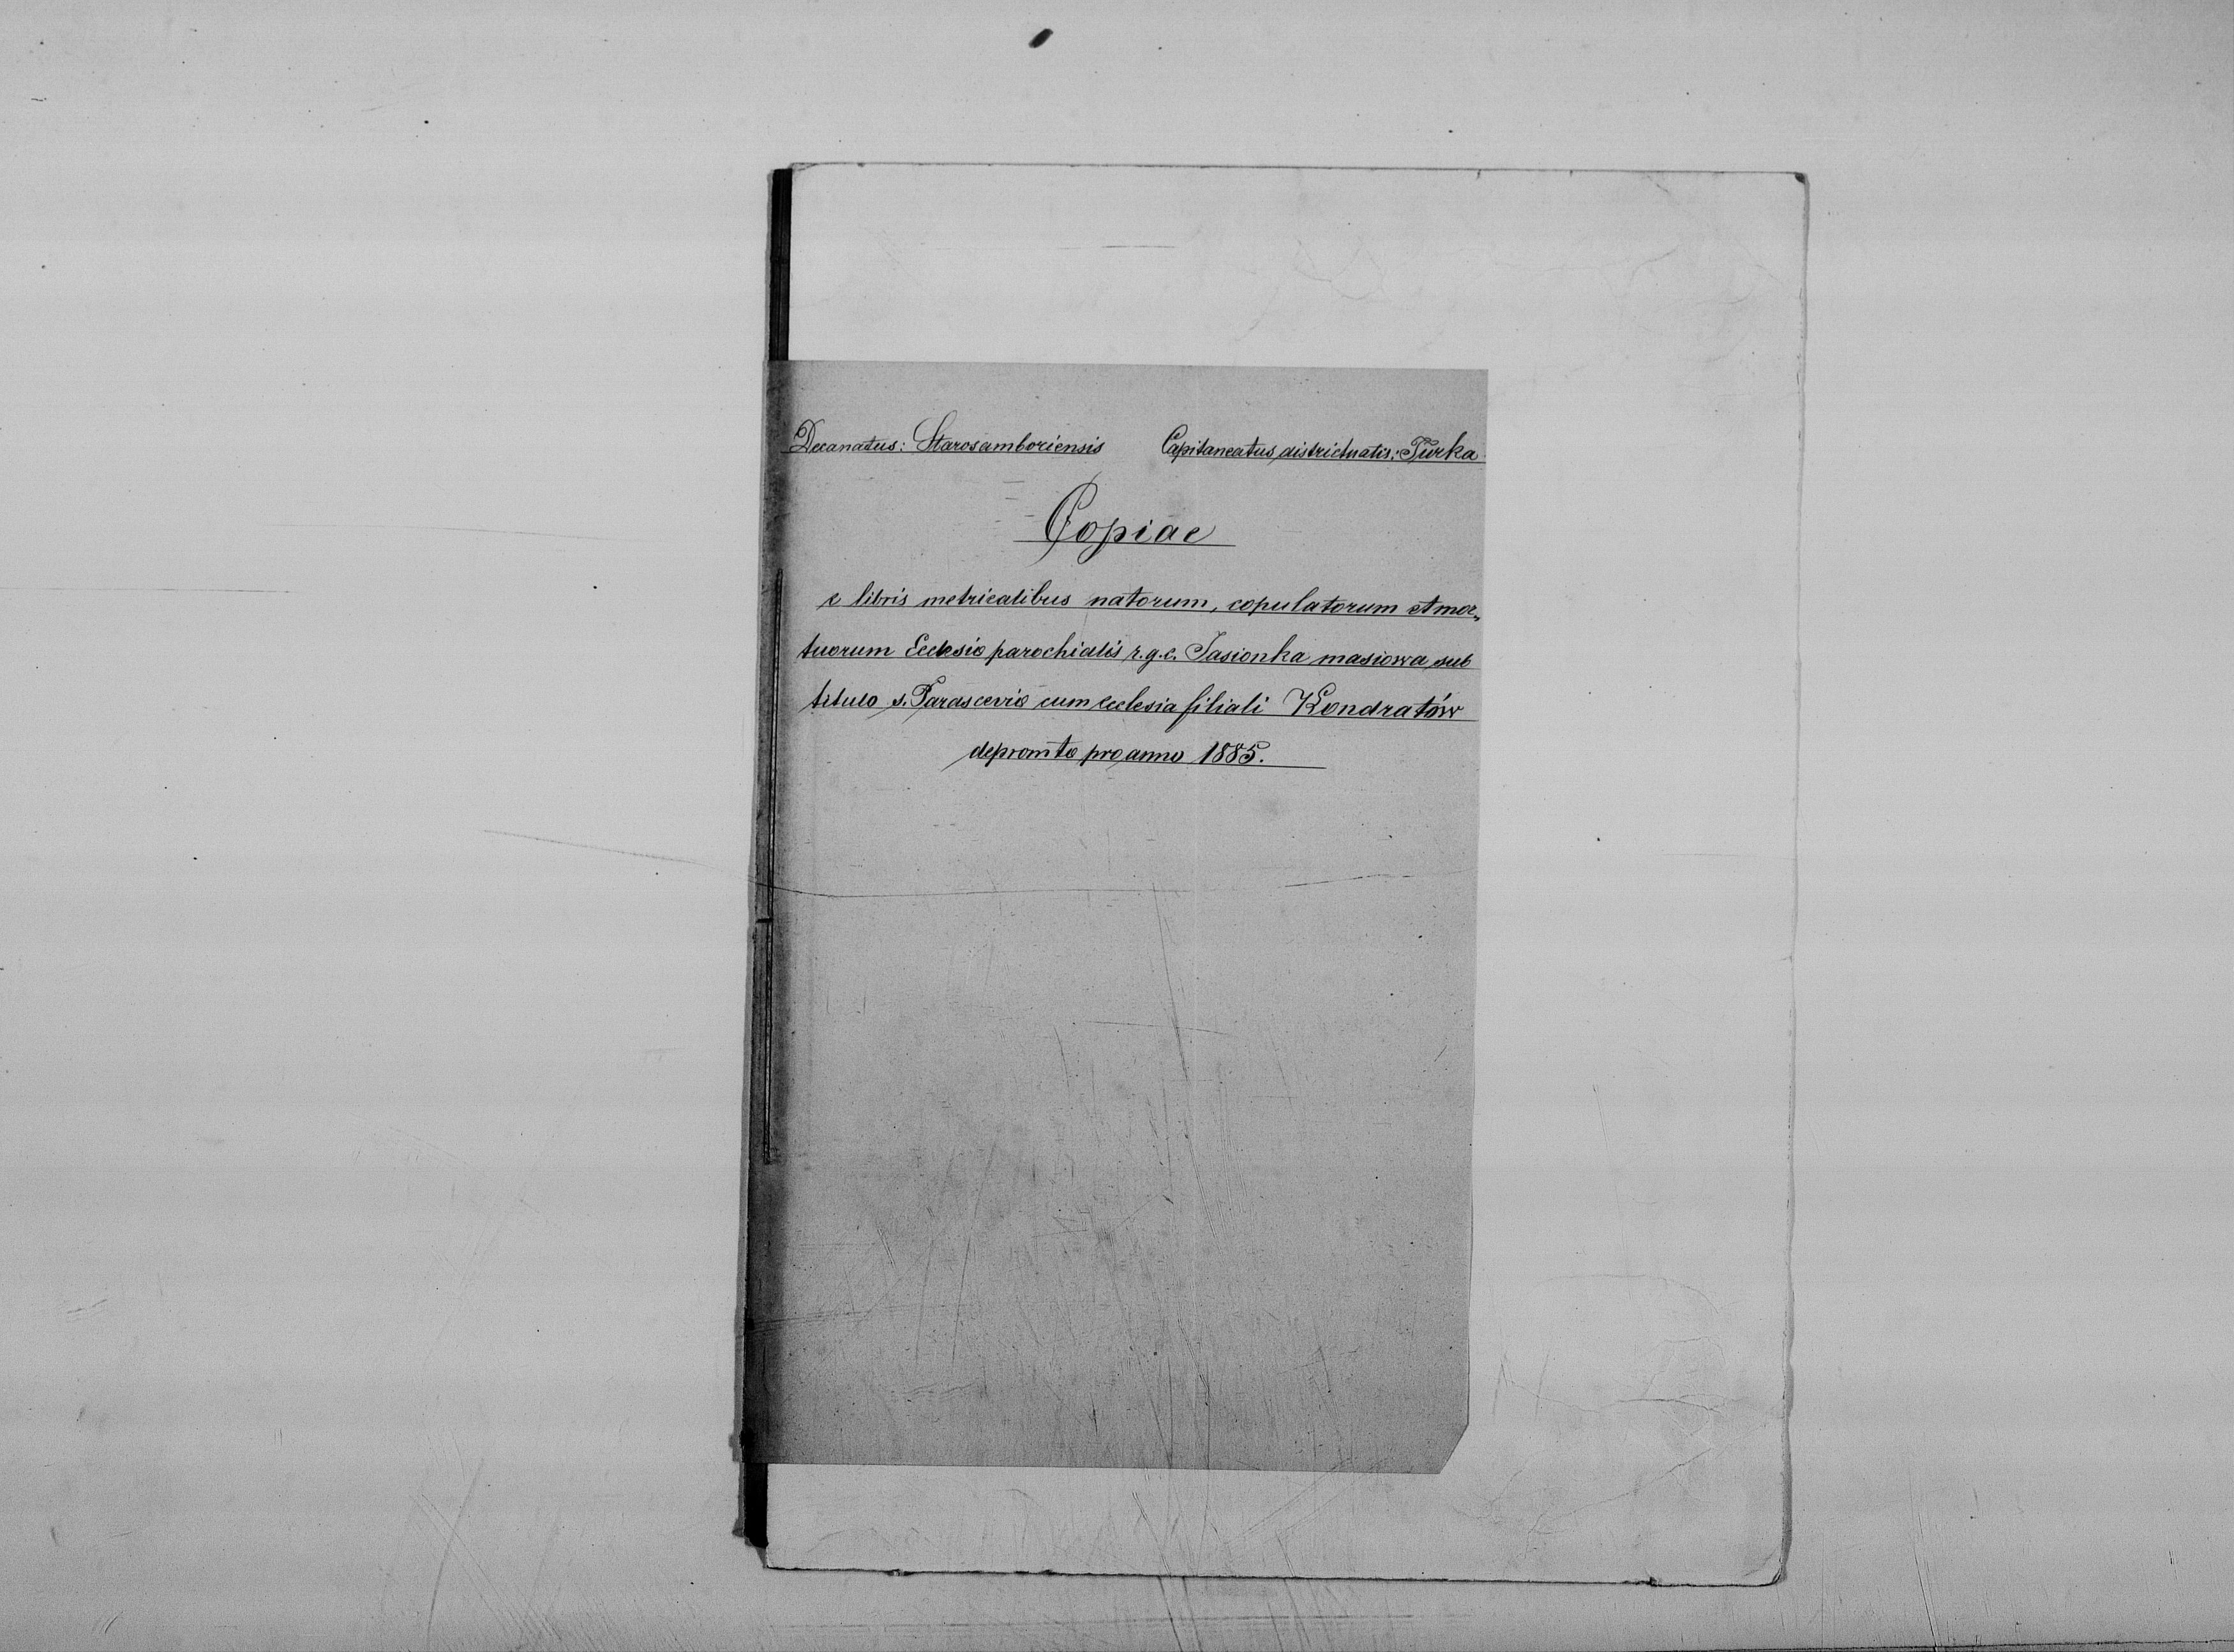 Decanatus: Starosamboriensis Capitaneatus districtualis: Turka
Copiae
e libris metricalibus natorum, copulatorum et mor„
tuorum Ecclesiæ parochialis r.g.c. Jasionka masiowa sub
titulo s. Parasceviæ cum ecclesia filiali Kondratów
depromtæ pro anno 1885.